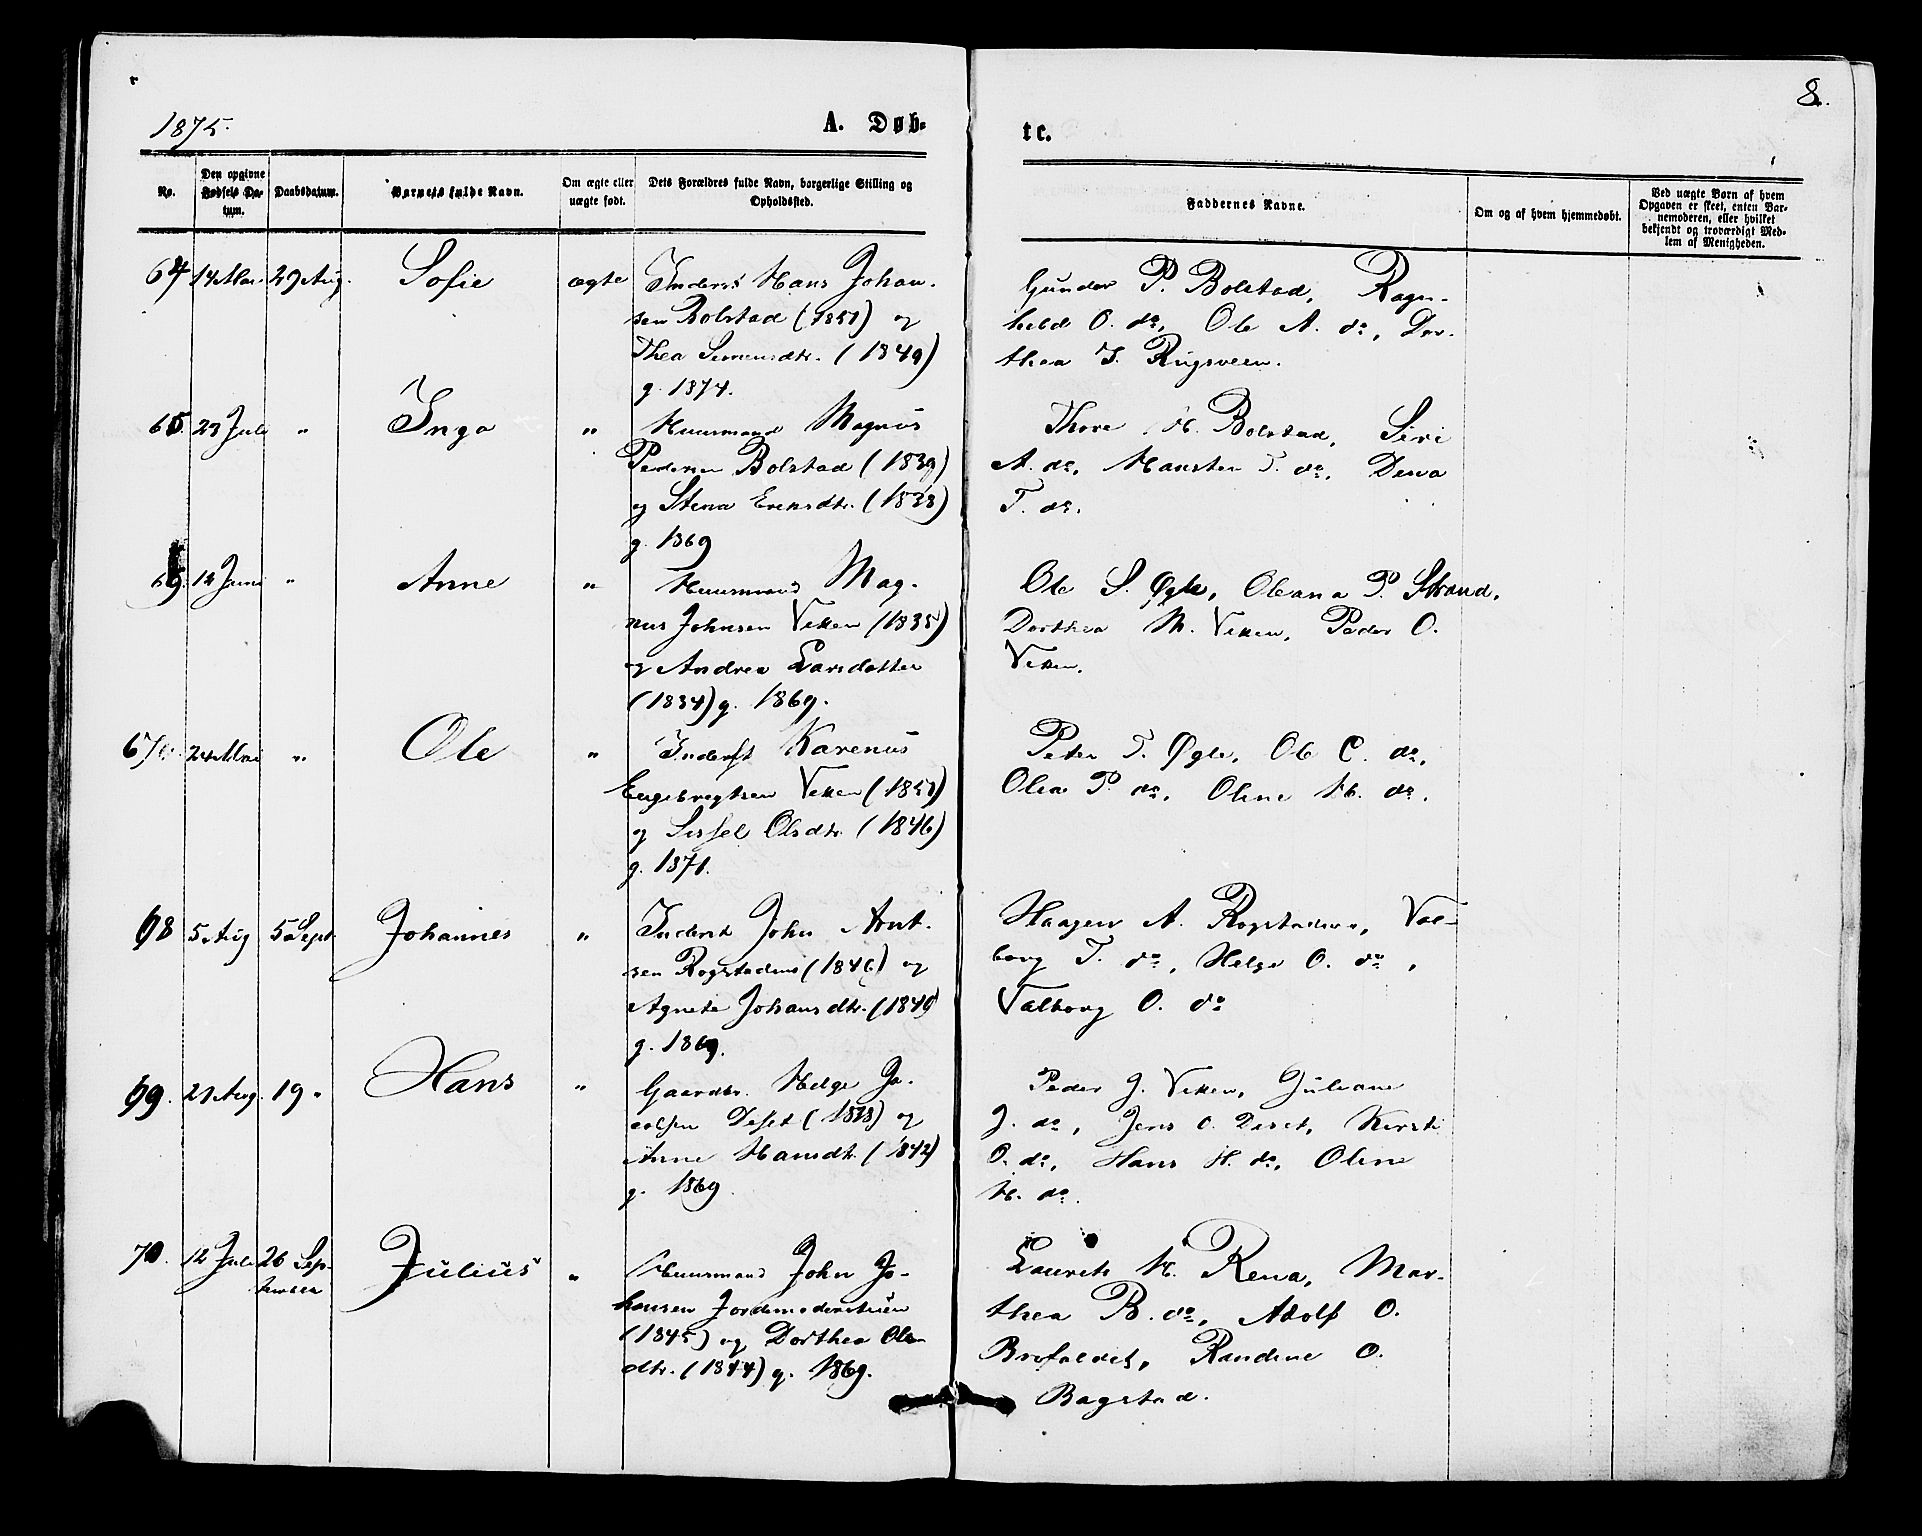 8.
1875.
A. Døb-
te.
No.
Den opgivne Fødsels Da-
tum.
Daabsdatum.
Barnets fulde Navn.
Om ægte eller
uægte født.
Dets Forældres fulde Navn, borgerlige Stilling og
Opholdssted.
Faddernes Navne.
Om og af hvem hjemmedøbt.
Ved uægte Børn af hvem
Opgaven er skeet, enten Bar-
nemoderen, eller hvilket
bekjendt og troværdigt Med-
lem af Menigheden.
64 14 Mai 29 Aug. Sofie ægte Inderst Hans Johan-
sen Bolstad (1851) og
Thea Simensdtr. (1849)
g. 1874.
Gunder P. Bolstad, Ragn-
hild O. do, Ole A. do, Dor-
thea I. Rugsveen.
65. 23 Juli " Inga " Huusmand Magnus
Pedersen Bolstad (1839)
og Stena Eriksdtr. (1838)
g. 1869
Thore H. Bolstad, Siri
A. do, Hansten T. do,
T. do.
66. 12 Juni " Anne " Huusmand Mag-
nus Johnsen Vikken (1835)
og Andrea Larsdatter
(1834) g. 1869.
Ole S. Øgle, Oleana P. Strand,
Dorthea M. Vikken, Peder O.
Vikken.
67. 24 Mai " Ole " Inderst Karenus
Engebregtsen Vikken (1851)
og Sissel Olsdtr. (1846)
g. 1871.
Peter T. Øgle, Ole C. do,
Olea P. do, Oline H. do.
68 5 Aug 5 Sept. Johannes " Inderst John Arnt-
sen Rogstadens (1846) og
Agnete Johansdtr. (1849)
g. 1869.
Haagen A. Rogstadens, Val-
borg T. do, Helge O. do,
Valborg O. do
69. 21 Aug. 19 " Hans " Gaardbr. Helge Ja-
cobsen Deset (1838) og
Anne Hansdtr. (1842)
g. 1869.
Peder J. Vikken, Juliane
J. do, Jens O. Deset, Kirsti
O. do, Hans H. do, Oline
H. do.
70. 12 Juli 26 Sep-
tember Julius " Huusmand John Jo-
hansen Jordmoderstuen
(1845) og Dorthea Ols-
dtr. (1844) g. 1869.
Laurits H. Rena, Mar-
thea B. do, Adolf O.
Brofaldet, Randine O.
Bagstad.